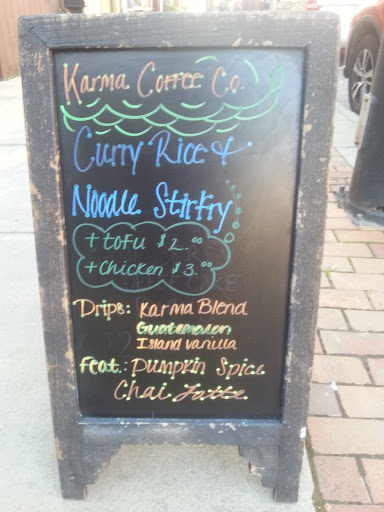 Karma Coffee Co.
Curry Rice +
Noodle Stirfry
+ tofu $2.00
+ Chicken $3.00
Drips: Karma Blend
Guatemalan
Island Vanilla
Feat.: Pumpkin Spice
Chai Latte